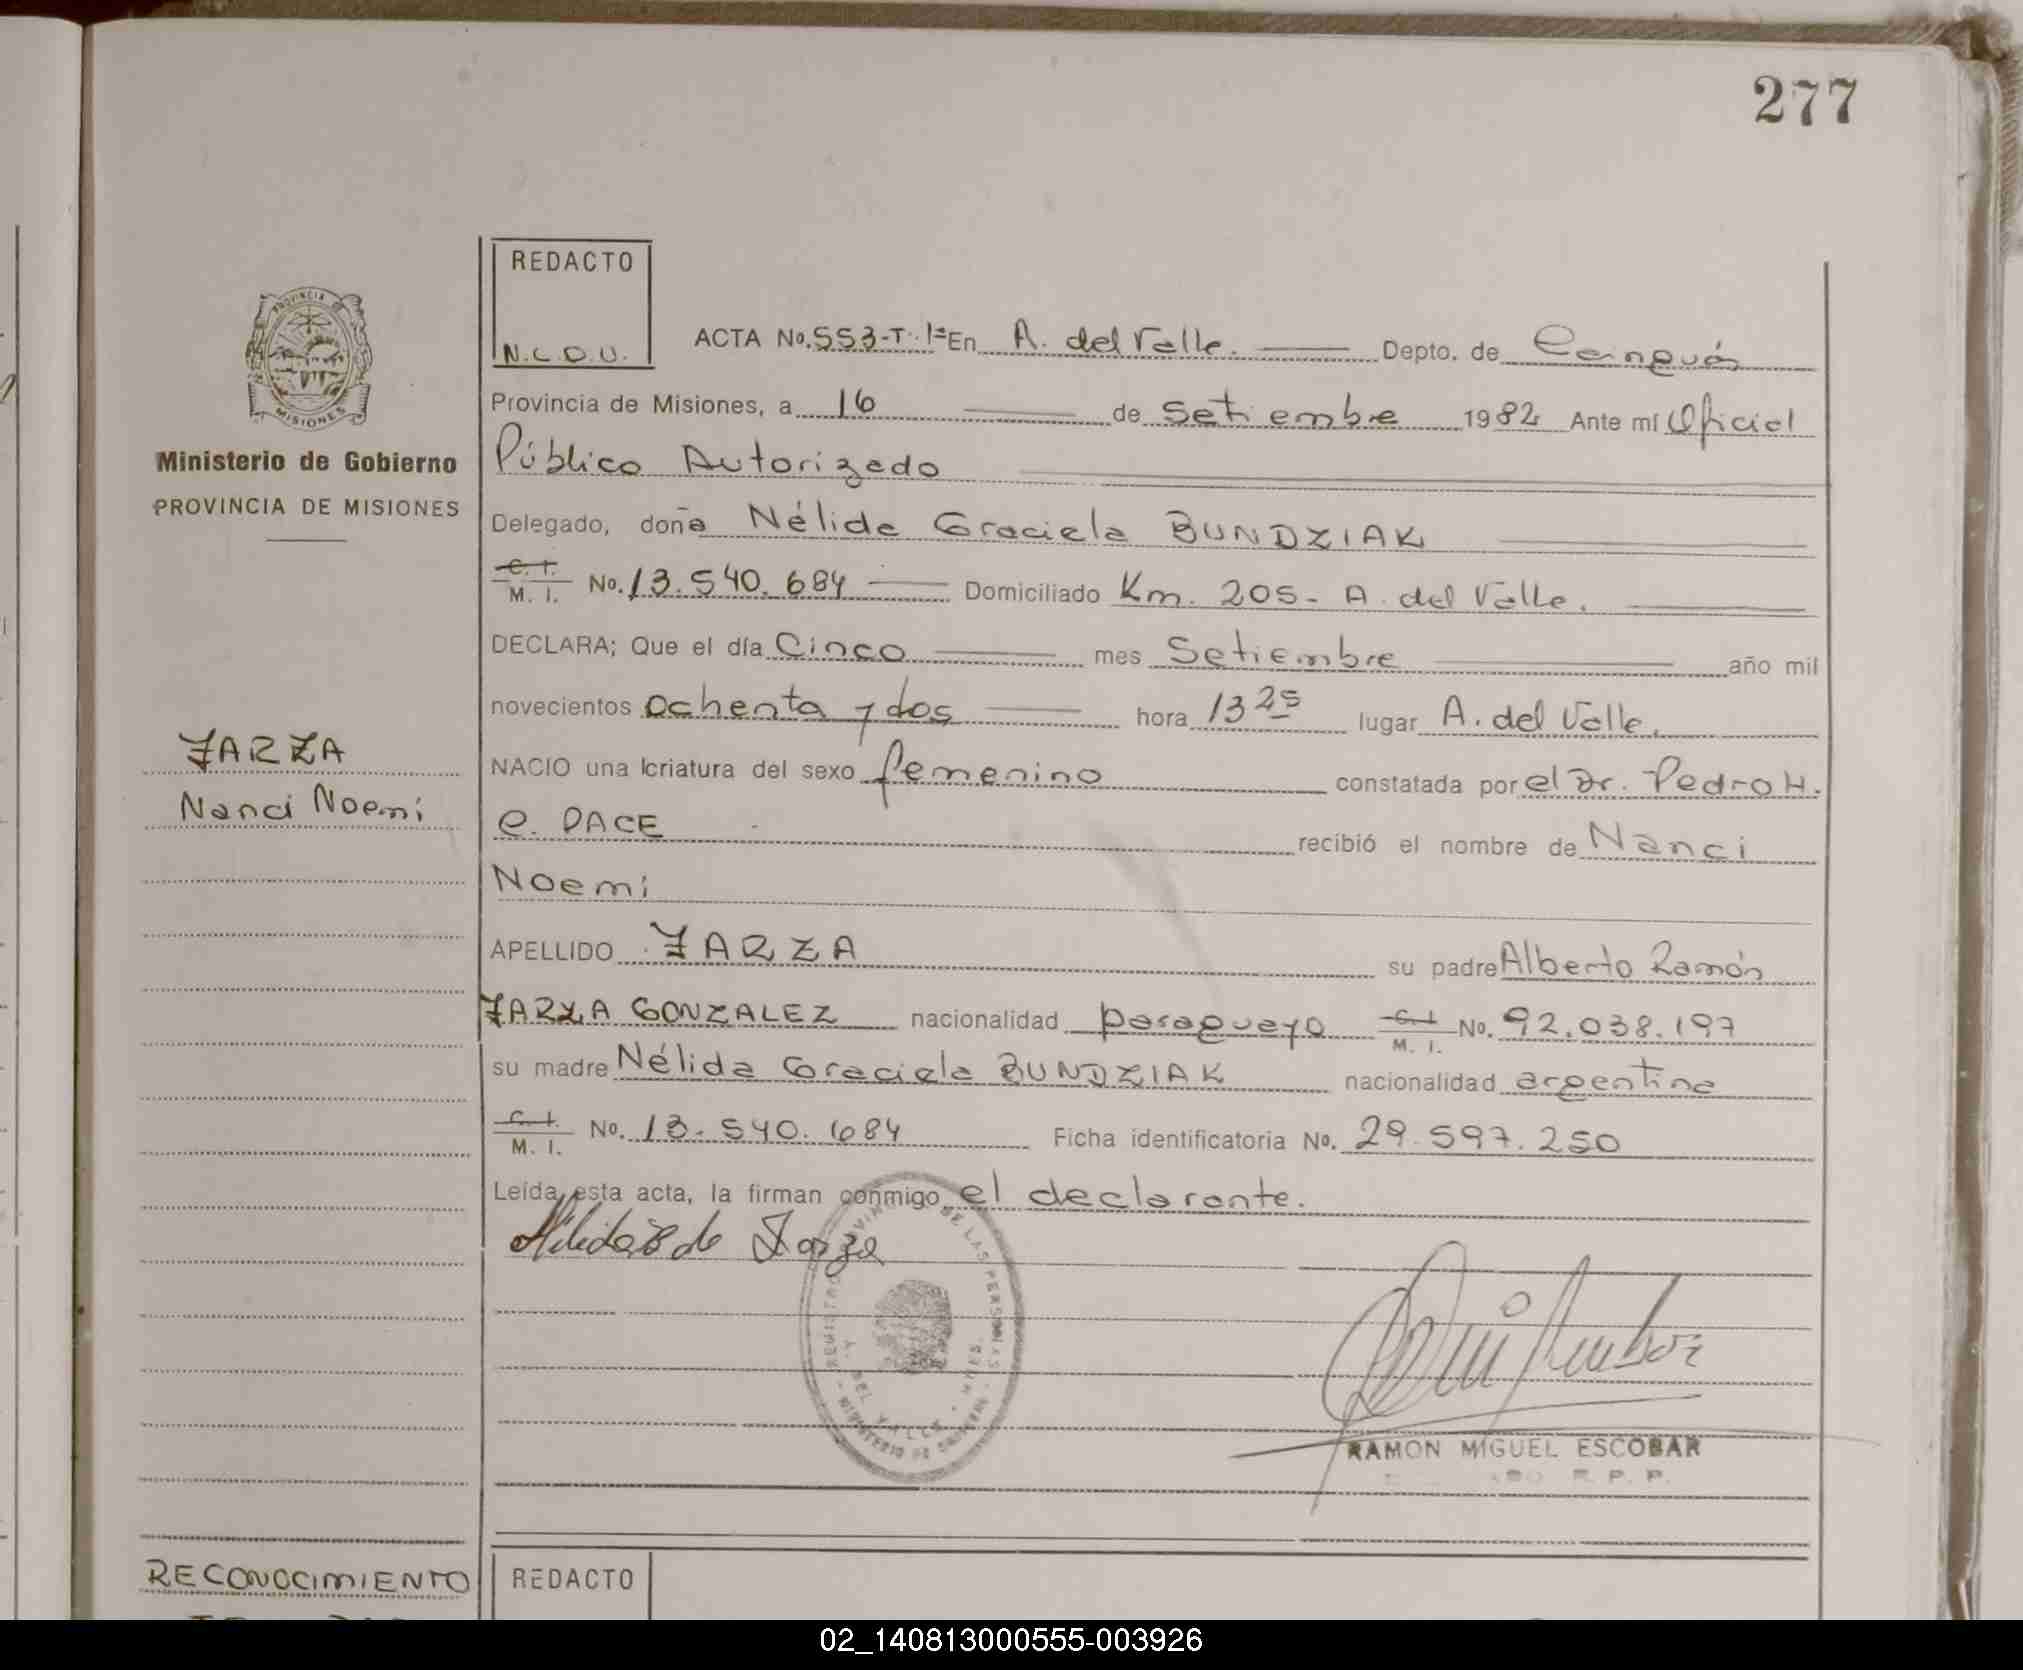 277
REDACTO
N.C.D.U.
PROVINCIA DE
MISIONES
Ministerio de Gobierno
PROVINCIA DE MISIONES
ACTA No. 553-T. 1ª En A. del Valle. Depto. de Cainguás
Provincia de Misiones, a 16 de Setiembre 1982 Ante mí Oficial
Público Autorizado
Delegado, doña Nélida Graciela BUNDZIAK
C. I. M. I. No. 13.540.684 Domiciliado Km. 205- A. del Valle.
DECLARA; Que el día Cinco mes Setiembre año mil
novecientos ochenta y dos hora 13 25 lugar A. del Valle.
ZARZA
Nanci Noemi
NACIO una criatura del sexo femenino constatada por el Dr. Pedro H.
C. PACE recibió el nombre de Nanci
Noemi
APELLIDO ZARZA su padre Alberto Ramón
ZARZA GONZALEZ nacionalidad paraguayo C. I. M. I. No. 92.038.197
su madre Nélida Graciela BUNDZIAK nacionalidad argentina
C. I. M. I. No. 13.540.684 Ficha identificatoria No. 29.597.250
Leída esta acta, la firman conmigo el declarante.
de Zarza
DE LAS PERSONAS
DEL VALLE
MINISTERIO DE GOBIERNO
RAMON MIGUEL ESCOBAR
R. P. P.
RECONOCIMIENTO
REDACTO
02_140813000555-003926